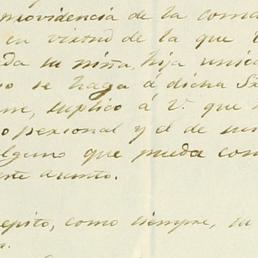 providencia de la coma
en virtud de la que
da su niña, hija unic
so se haga á dicha S
me, suplico á V. que
o personal y el de su
alguno que pueda com
este asunto.
repito, como siempre, su